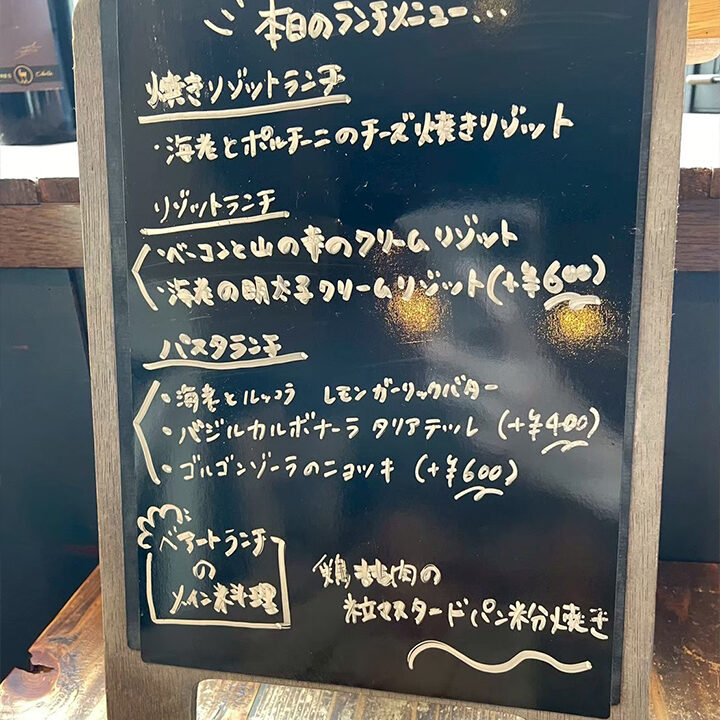 本日のランチメニュー...
焼きリゾットランチ
・海老とポルチーニのチーズ焼きリゾット
リゾットランチ
・ベーコンと山の幸のクリームリゾット
・海老の明太子クリームリゾット(+¥600)
パスタランチ
・海老とルッコラ レモンガーリックバター
・バジルカルボナーラ タリアテッレ (+¥400)
・ゴルゴンゾーラのニョッキ (+¥600)
ペアートランチ
の
メイン料理
鶏もも肉の
粒マスタードパン粉焼き